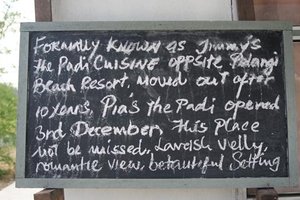 Foramlly Known as Jimmy's
the Padi CUISINE opposite Pelangi
Beach Resort, moved out after
10 years Pia's the Padi opened
3rd December, This Place
not be missed,, Lavish Velly,
romantic view, beautiful Setting